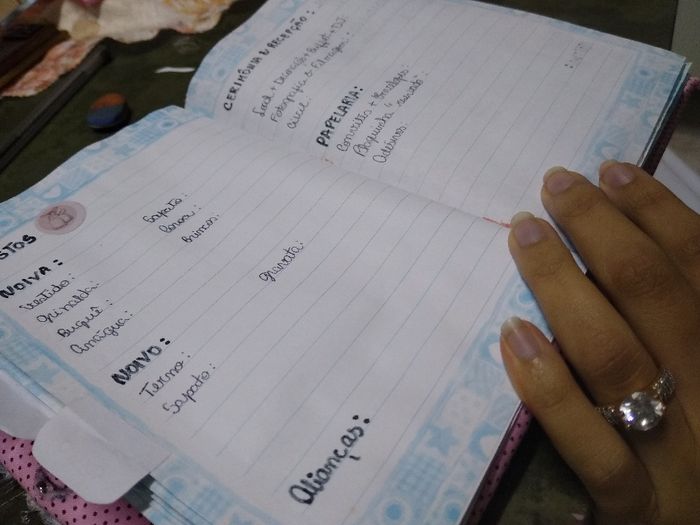 STOS
NOIVA:
Vestido: Sapato:
Grinalda: Coroa:
Buquê: Brincos:
Anágua:
NOIVO:
Terno: Gravata:
Sapato:
Alianças:
CERIMÔNIA & RECEPÇÃO:
Local + Decoração + Buffet + DJ:
Fotografia & Filmagem:
Civil:
PAPELARIA:
Convites + Envelopes:
Plaquinha
Adesivos: